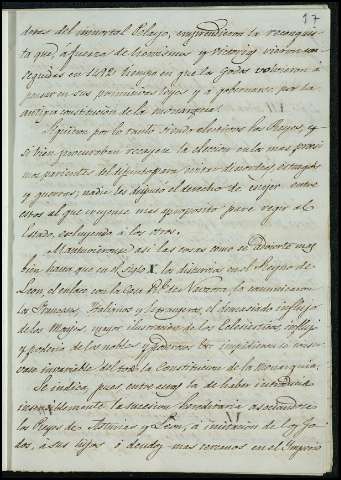 17
dores del inmortal Pelayo, emprendieron la reconquis-
ta que, á fuerza de heroismo y victorias vieron con-
seguida en 1492 tiempo en que los godos volvieron á
pensar en sus primitivas leyes y á gobernarse por la
antigua constitucion de la monarquia.
Siguieron por lo tanto siendo electivos los Reyes, y
si bien procuraban recayese la eleccion en los mas procsi-
mos parientes del difunto para evitar discordias, estragos
y guerras; nadie les disputó el derecho de escojer entre
estos al que creyesen mas aproposito para regir al
Estado, escluyendo á los otros.
Mantuvieronse asi las cosas como se advierte mas
bien hasta que en el Siglo X, la discordia en el Reyno de
Leon, el enlace con la Casa Rl. de Navarra, la comunicacion
los Franceses, Italianos y Estrangeros, el demasiado influjo
de los Monges, mayor ilustracion de los Eclesiasticos, influjo
y poderio de los nobles y poderosos &a. impidieron se conser-
vase invariable del todo la Constitucion de la Monarquia.
Se indica, pues entonces la de haber introducido
insensiblemente la sucesion hereditaria asociandose
los Reyes de Asturias y Leon, á imitacion de los Go-
dos, á sus hijos ó deudos mas cercanos en el Imperio